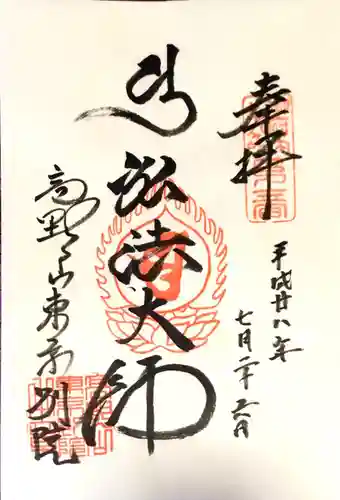 奉拝
平成廿八年
七月二十六日
弘法大師
高野山東京別院